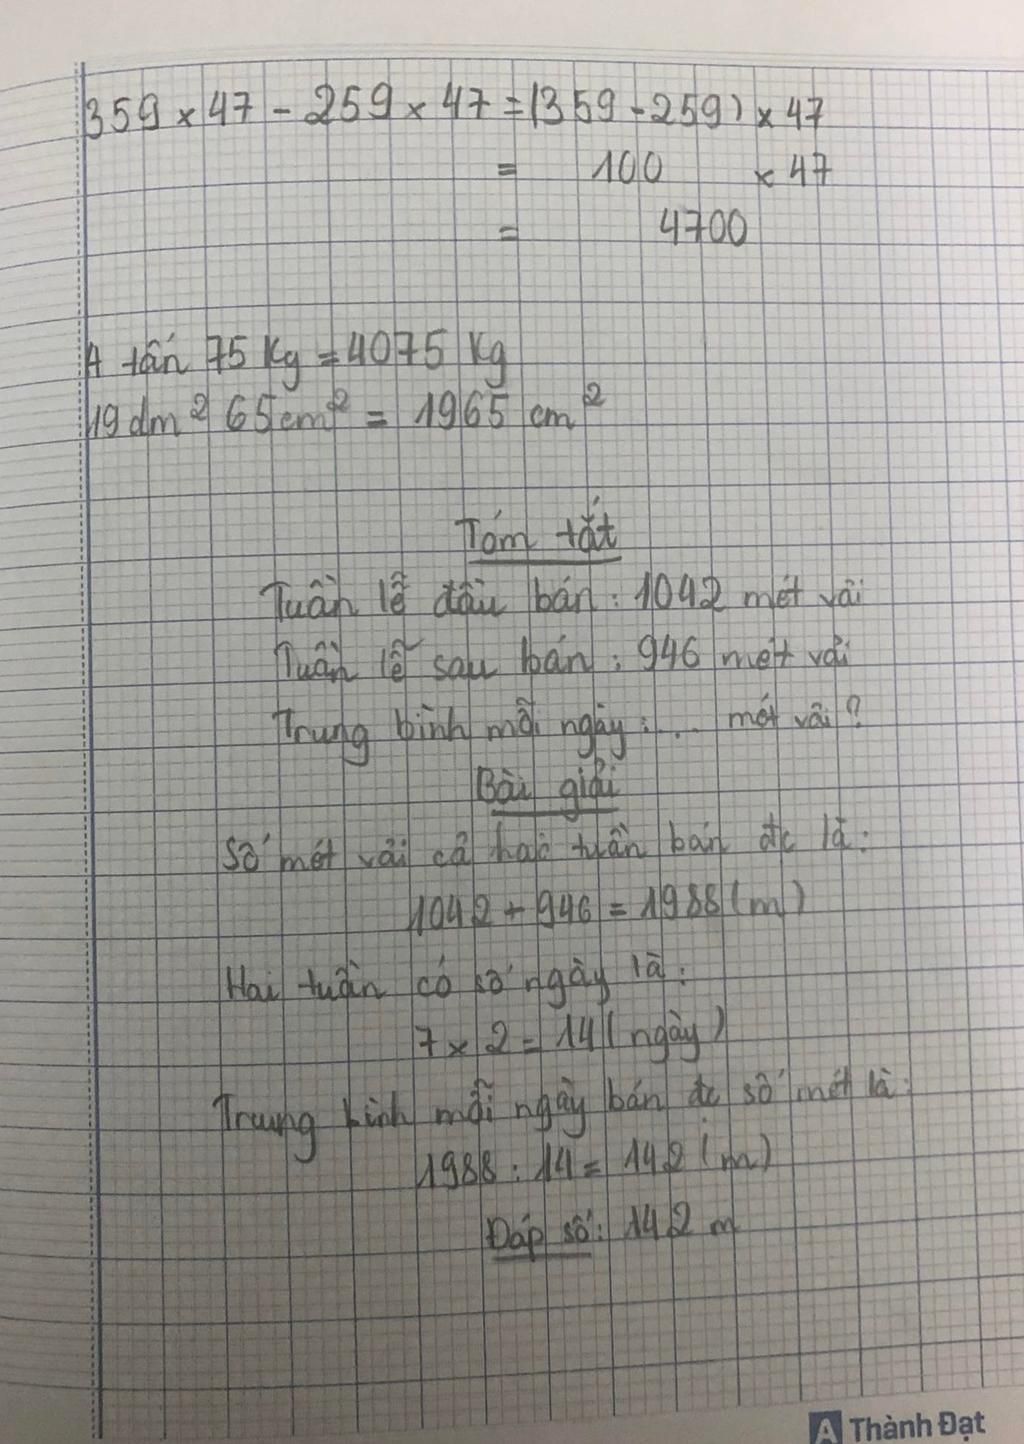 359 × 47 - 259 × 47 = (359 - 259) × 47
= 100 × 47
= 4700
4 tấn 75 Kg = 4075 Kg
19 dm² 65 cm² = 1965 cm²
Tóm tắt
Tuần lễ đầu bán : 1042 mét vải
Tuần lễ sau bán : 946 mét vải
Trung bình mỗi ngày : ... mét vải ?
Bài giải
Số mét vải cả hai tuần bán đc là :
1042 + 946 = 1988 (m)
Hai tuần có số ngày là :
7 × 2 = 14 (ngày)
Trung bình mỗi ngày bán đc số mét là :
1988 : 14 = 142 (m)
Đáp số : 142 m
A Thành Đạt